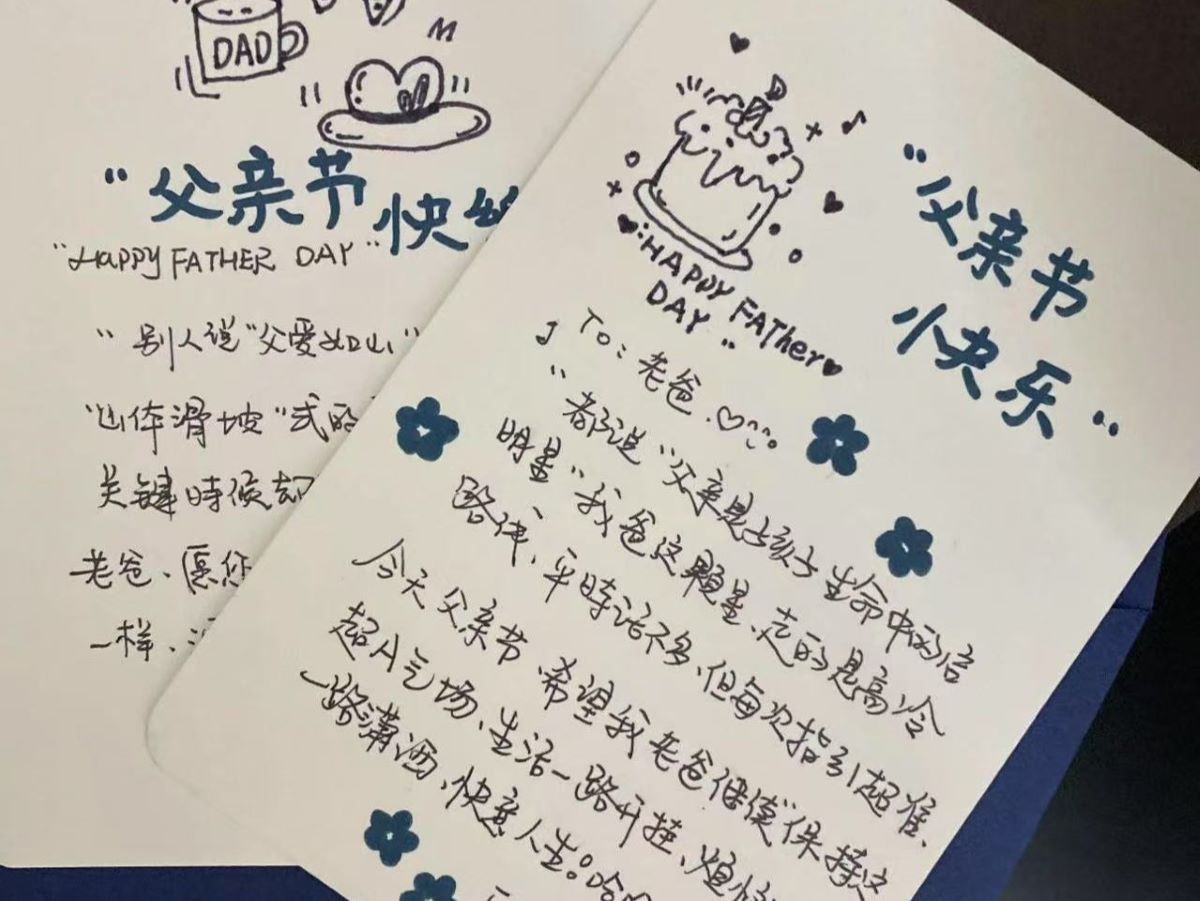 DAD
"父亲节快
"HAPPY FATHER DAY"
"别人说"父爱如山"
"山体滑坡"式的
关键時候却
老爸、愿您
一样、
"父亲节
快乐"
"HAPPY FATher
DAY"
To:老爸.
"都说"父亲是孩子生命中的启
明星"我爸这颗星、走的是高冷
路线、平時话不多、但每次指引超准、
今天父亲节、希望我老爸继续"保持这
超A气场、生活一路开挂、烦恼
一路潇洒、快意人生。哈哈